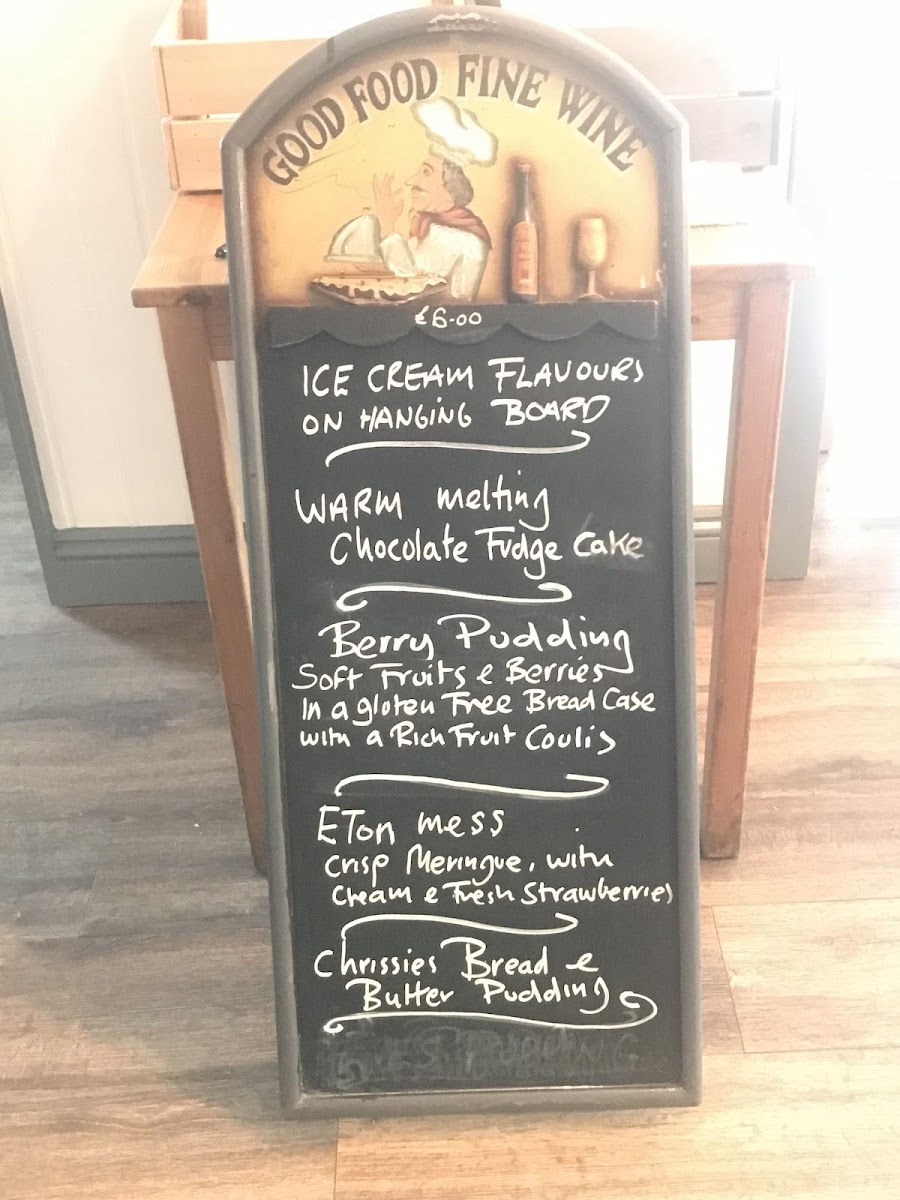 GOOD FOOD FINE WINE
£6.00
ICE CREAM FLAVOURS
ON HANGING BOARD
WARM melting
Chocolate Fudge Cake
Berry Pudding
Soft Fruits & Berries
In a gluten Free Bread Case
with a Rich Fruit Coulis
ETon mess
Crisp Meringue, with
Cream & Fresh Strawberries
Chrissies Bread &
Butter Pudding
PUDDING